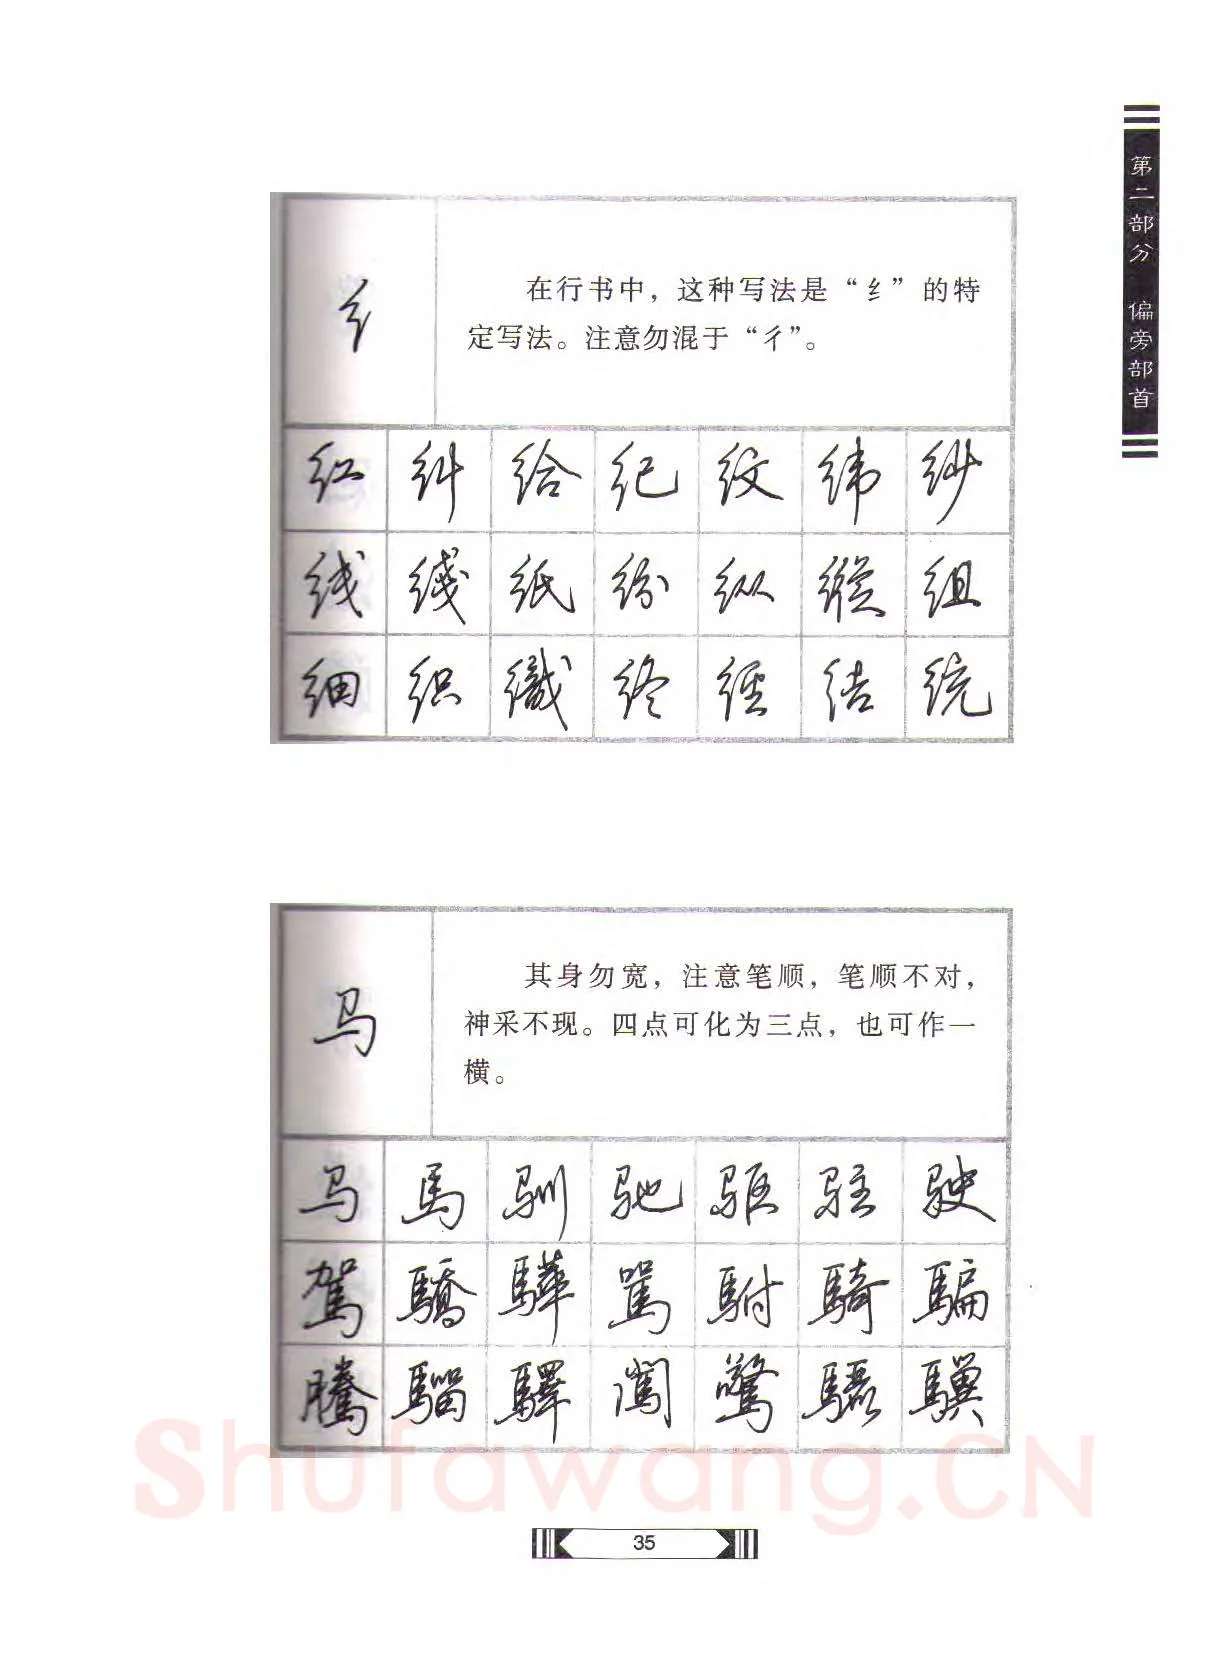 第二部分 偏旁部首
纟
在行书中，这种写法是“纟”的特
定写法。注意勿混于“彳”。
红 纠 给 纪 纹 纬 纱
线 綫 纸 纷 纵 縱 组
细 织 織 终 经 结 统
马
其身勿宽，注意笔顺，笔顺不对，
神采不现。四点可化为三点，也可作一
横。
马 馬 驯 驰 驱 驻 驶
駕 驕 驊 駡 駙 騎 騙
騰 騮 驛 闖 驚 騷 驥
Shufawang.CN
35